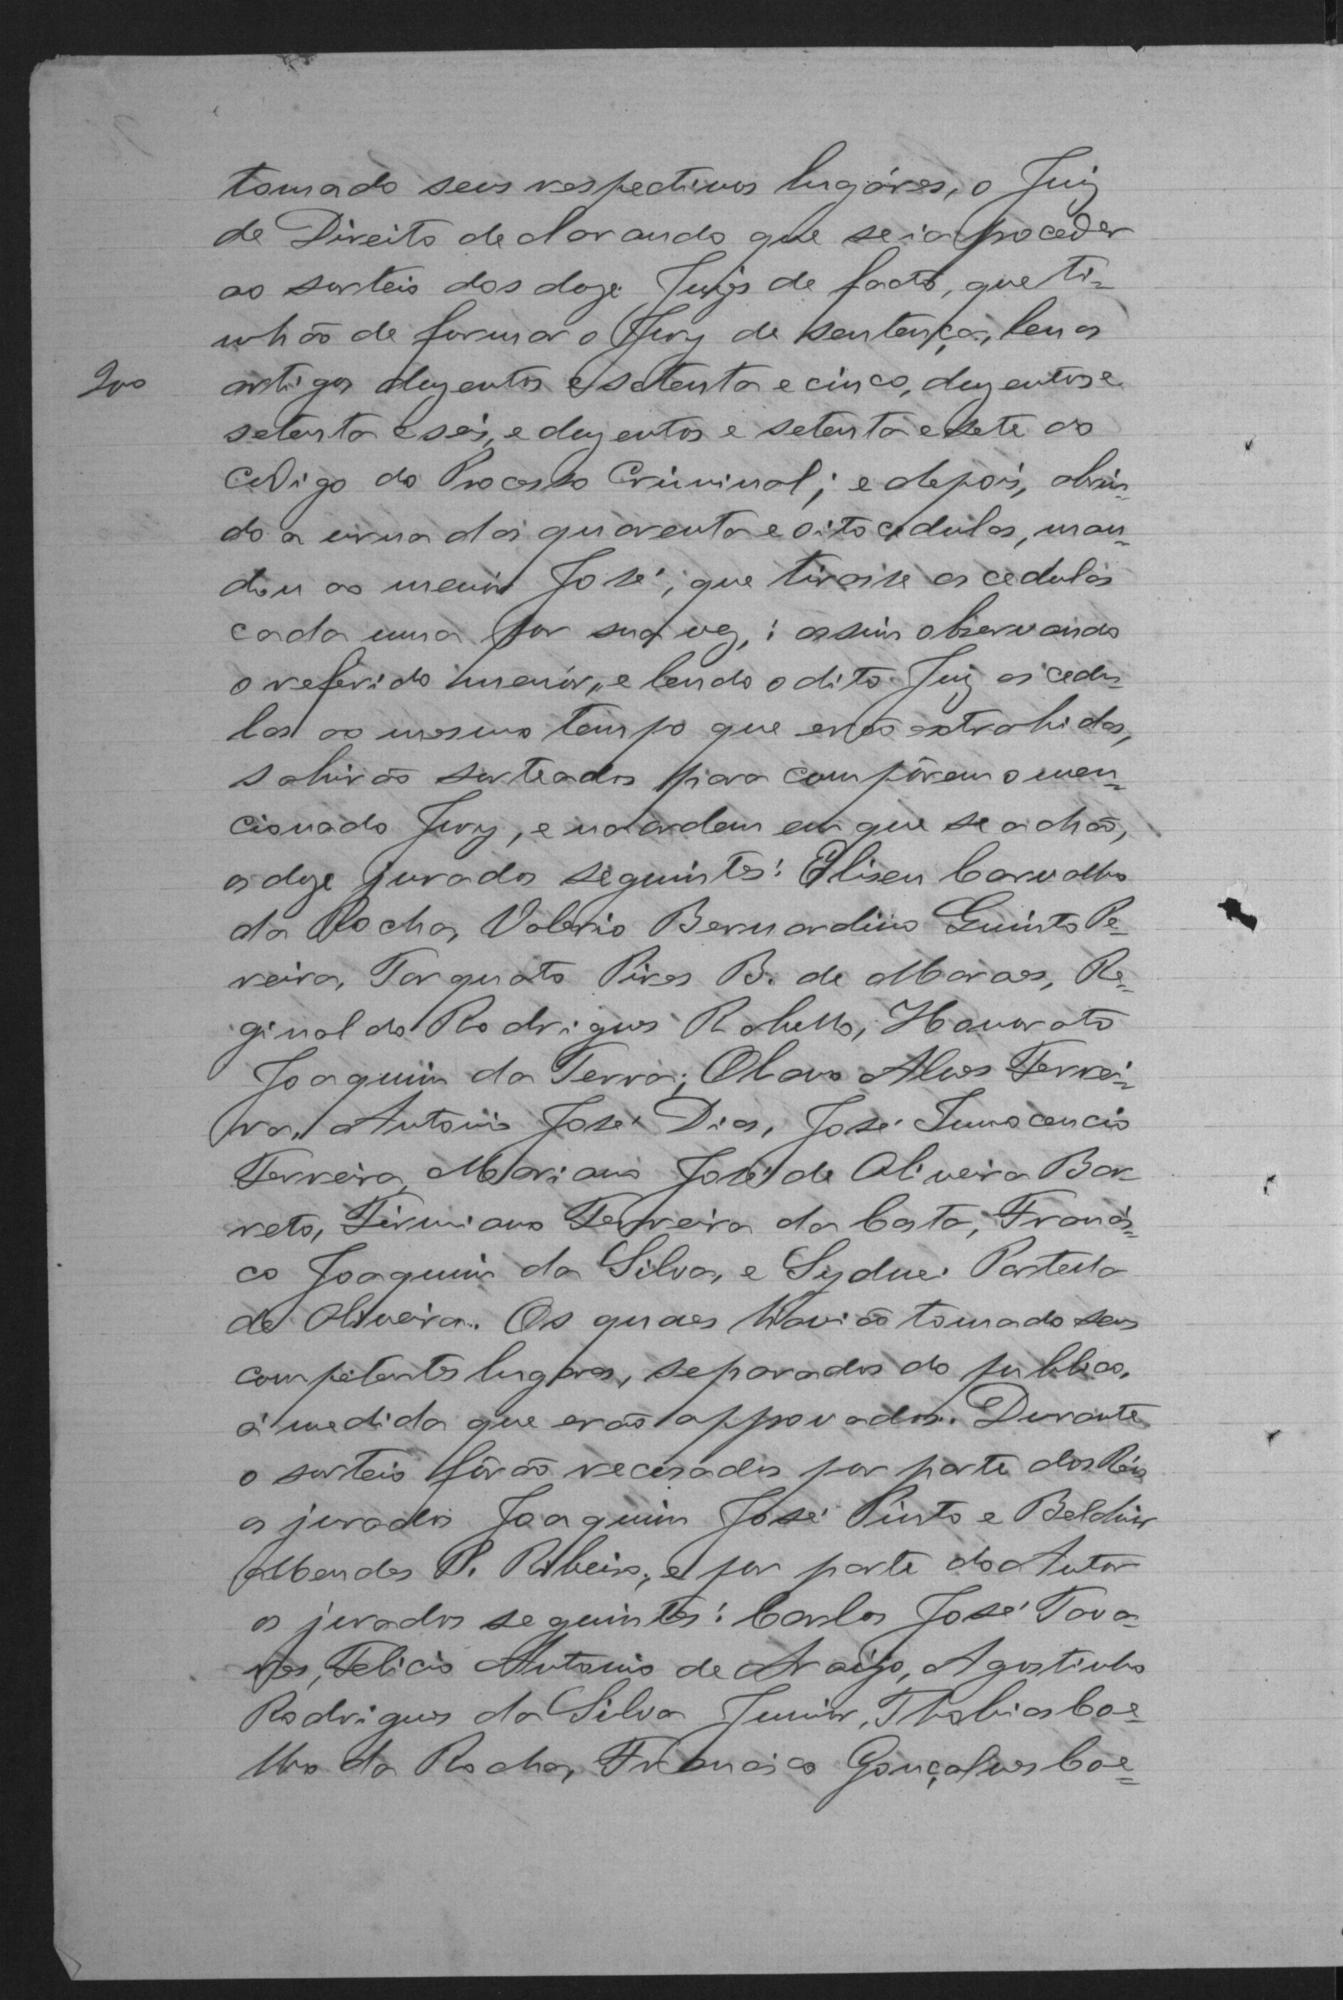 tomado seus respectivos lugáres, o Juiz
de Direito declarando que se ia proceder
ao sorteio dos doze Juizs de facto, que ti=
nhão de formar o Jury de sentença, leu os
200 artigos duzentos e setenta e cinco, duzentos e
setenta e seis, e duzentos e setenta e sete do
Codigo do Processo Criminal; e depois, abrin=
do a urna das quarenta e oito cedulas, man=
dou ao menor José, que tirasse as cedulas
cada uma por sua vez, i assim observando
o referido menór, e lendo o dito Juiz as cedu=
las ao mesmo tempo que erão extrahidas,
sahirão sorteados para compôrem o men=
cionado Jury, e na ordem em que se achão,
os doze jurados seguintes: Eliseu Carvalho
da Rocha, Valerio Bernardino Quinto Pe=
reira, Torquato Pires B. de Moraes, Re=
ginaldo Rodrigues Rabello, Honorato
Joaquim da Terra, Olavo Alves Ferrei=
ra, Antonio José Dias, José Innocencio
Ferreira, Mariano José de Oliveira Bar
reto, Firmiano Ferreira da Costa, Francis=
co Joaquim da Silva, e Sydnei Portella
de Oliveira. Os quaes havião tomado seus
competentes lugares, separados do publico,
á medida que erão approvados. Durante
o sorteio fôrão recusados por parte dos Réus
os jurados Joaquim José Pinto e Belchior
Mendes P. Ribeiro, e por parte do Autor
os jurados seguintes: Carlos José Tava=
res, Felicio Antonio de Araujo, Agostinho
Rodrigues da Silva Junior, Thobias Coe=
lho da Rocha, Francisco Gonçalves Coe=